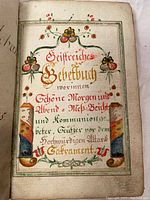 Geistreiches
Gebetbuch
worinnen
Schöne Morgen und
Abend = Meß Beicht
und Kommuniongebeter, Seufzer vor dem
Hochwürdigen Altars
Sakrament